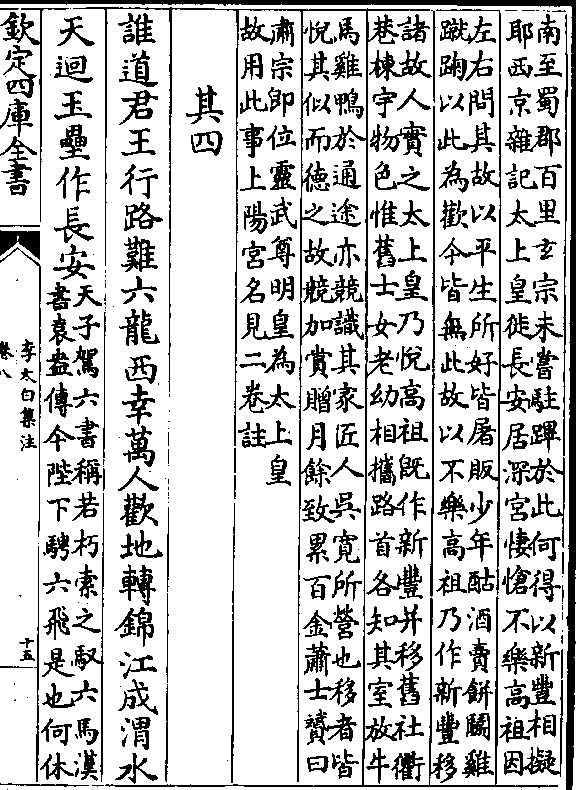 南至蜀郡百里玄宗未嘗駐蹕於此何得以新豐相擬
耶西京雜記太上皇徙長安居深宮悽愴不樂高祖因
左右問其故以平生所好皆屠販少年酤酒賣餅鬭雞
蹴踘以此為歡今皆無此故以不樂高祖乃作新豐移
諸故人實之太上皇乃悅高祖既作新豐并移舊社衢
巷棟宇物色惟舊士女老幼相攜路首各知其室放牛
馬雞鴨於通途亦競識其家匠人吳寬所營也移者皆
悅其似而德之故競加賞贈月餘致累百金蕭士贇曰
肅宗即位靈武尊明皇為太上皇
故用此事上陽宮名見二卷註
其四
誰道君王行路難六龍西幸萬人歡地轉錦江成渭水
天迴玉壘作長安
天子駕六書稱若朽索之馭六馬漢
書袁盎傳今陛下騁六飛是也何休
欽定四庫全書
李太白集注
卷八
十五